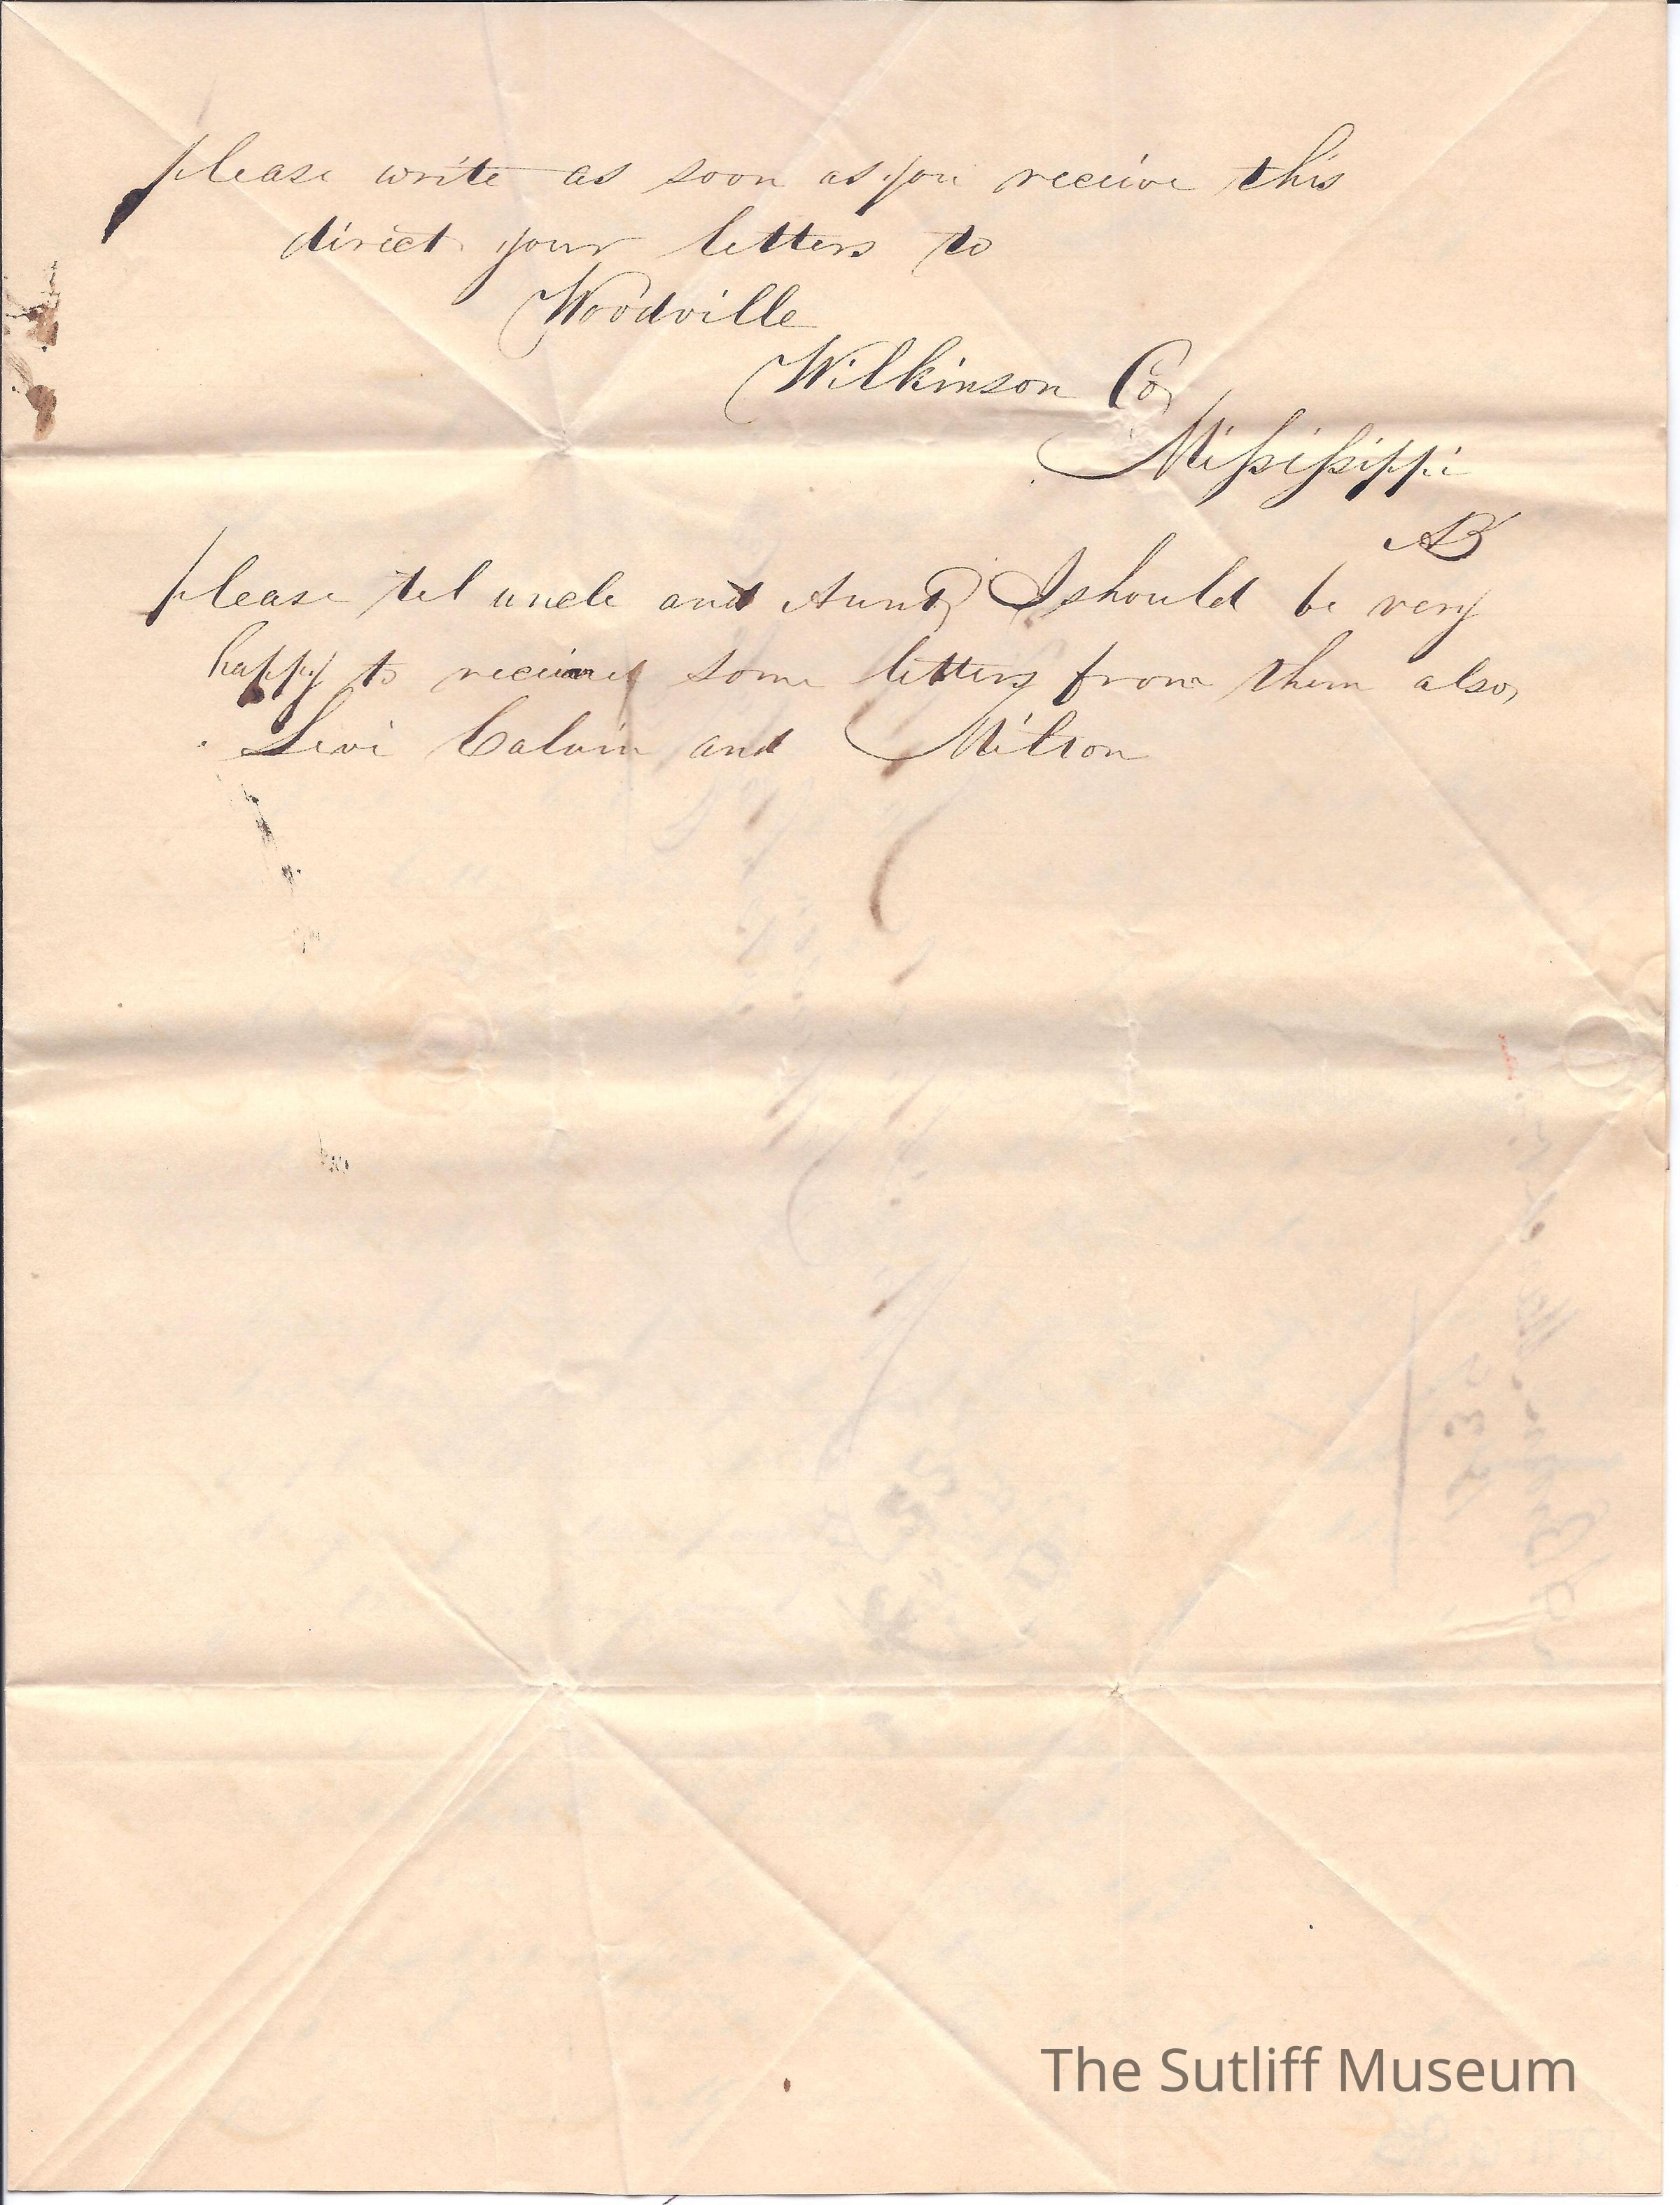 please write as soon as you receive this
direct your letters to
Woodville
Wilkinson Co,
Missisippi
AB
please tel uncle and Aunt, I should be very
happy to receive some letters from them also,
Levi Calvin and Milton
The Sutliff Museum